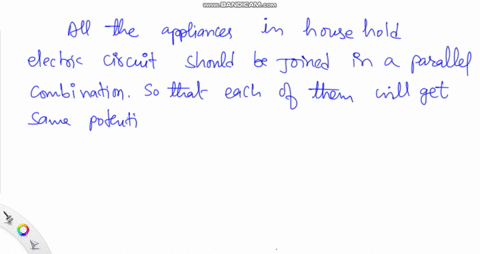 www.BANDICAM.com
All the appliances in house hold
electric circuit should be joined in a parallel
combination. So that each of them will get
same potenti